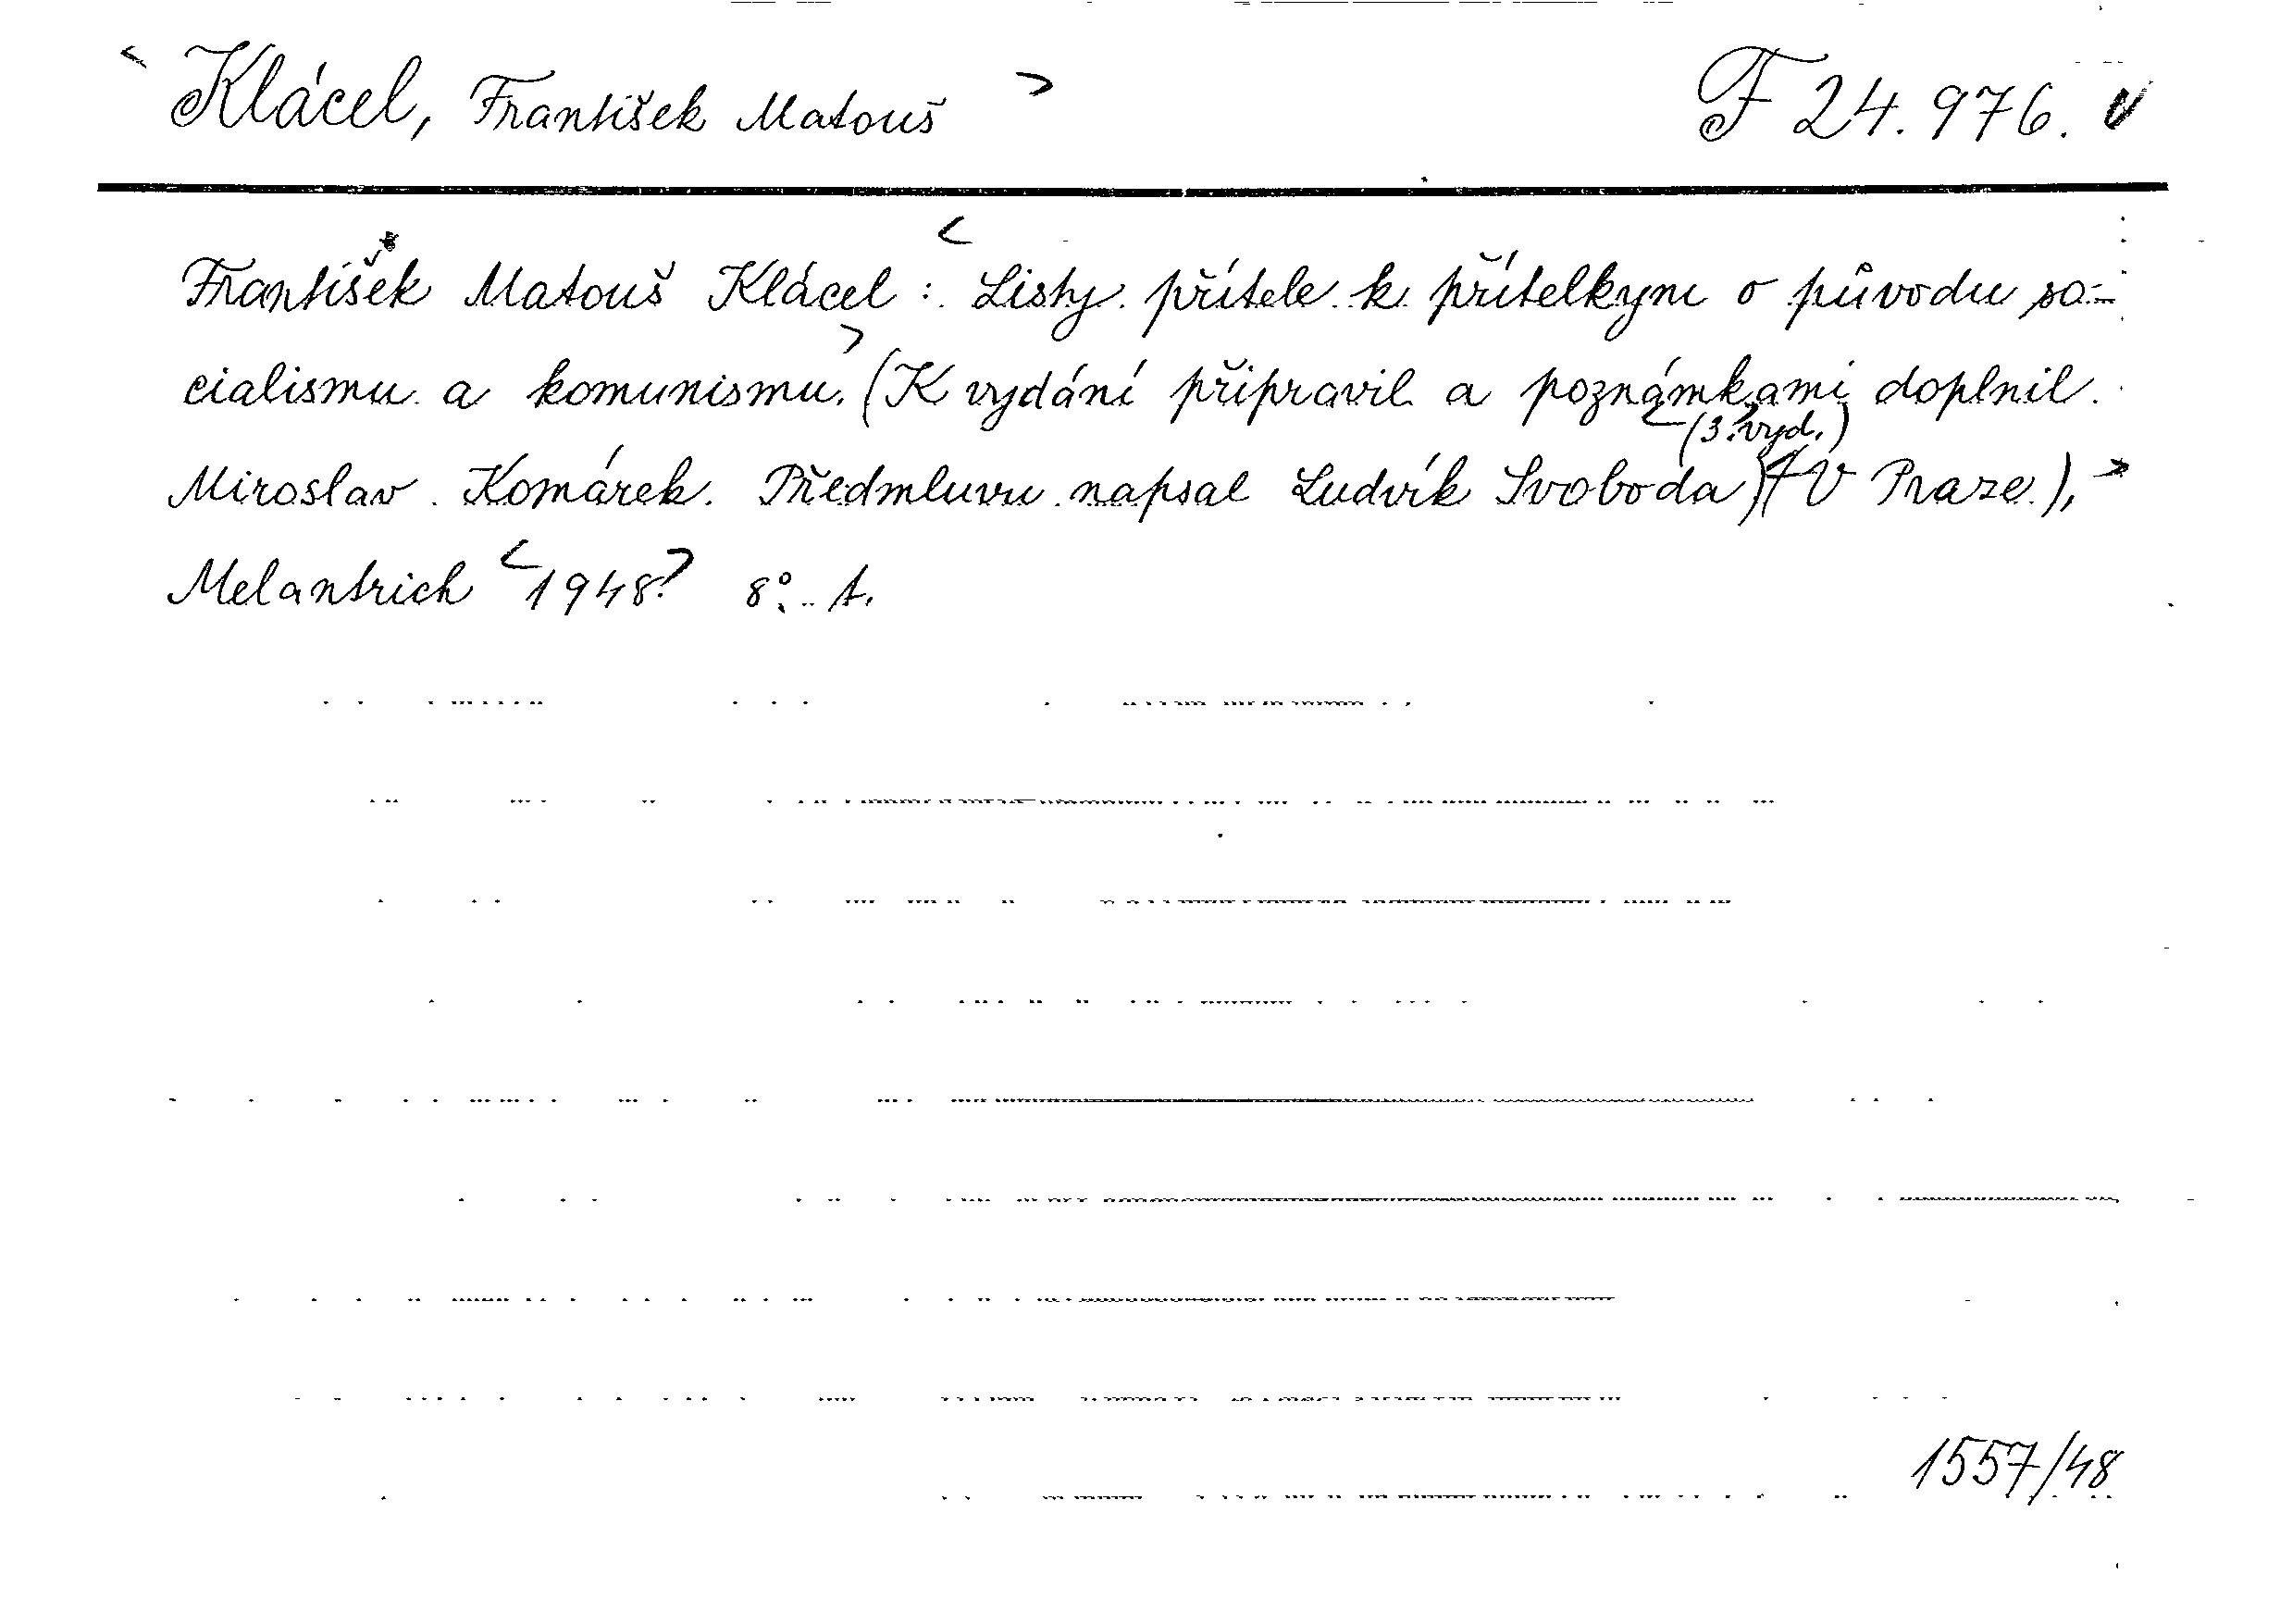 < Klácel, František Matouš > F 24.976. v
František Matouš Klácel : < Listy přítele k přítelkyni o původu so-
cialismu a komunismu. > (K vydání připravil a poznámkami doplnil
Miroslav Komárek. Předmluvu napsal Ludvík Svoboda) < (3. vyd.) > (V Praze), >
Melantrich < 1948. > 8°. t.
1557/48